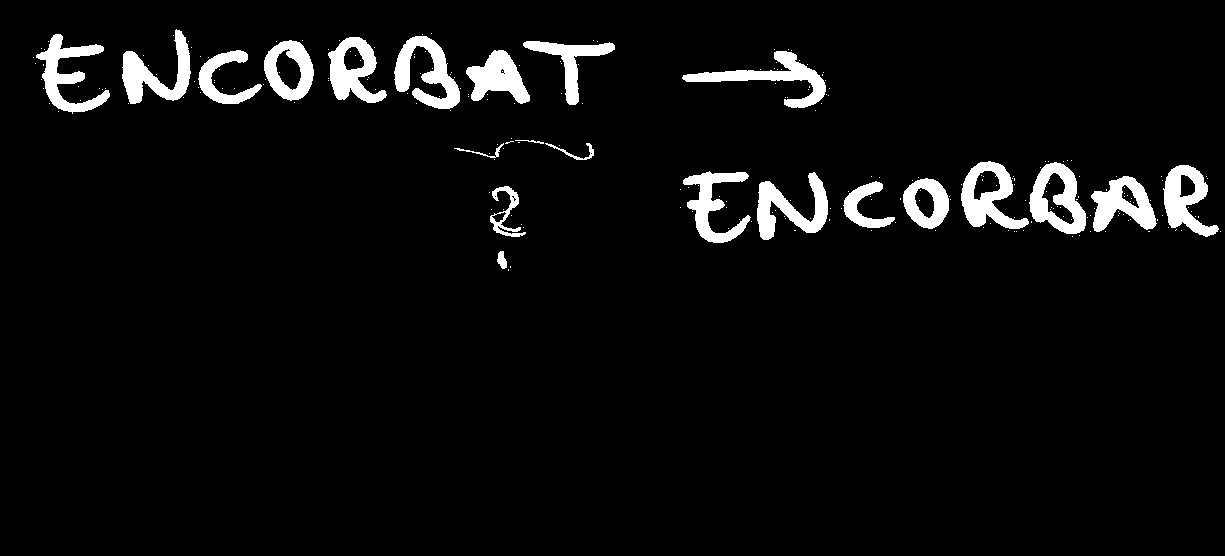 ENCORBAT →
?
ENCORBAR